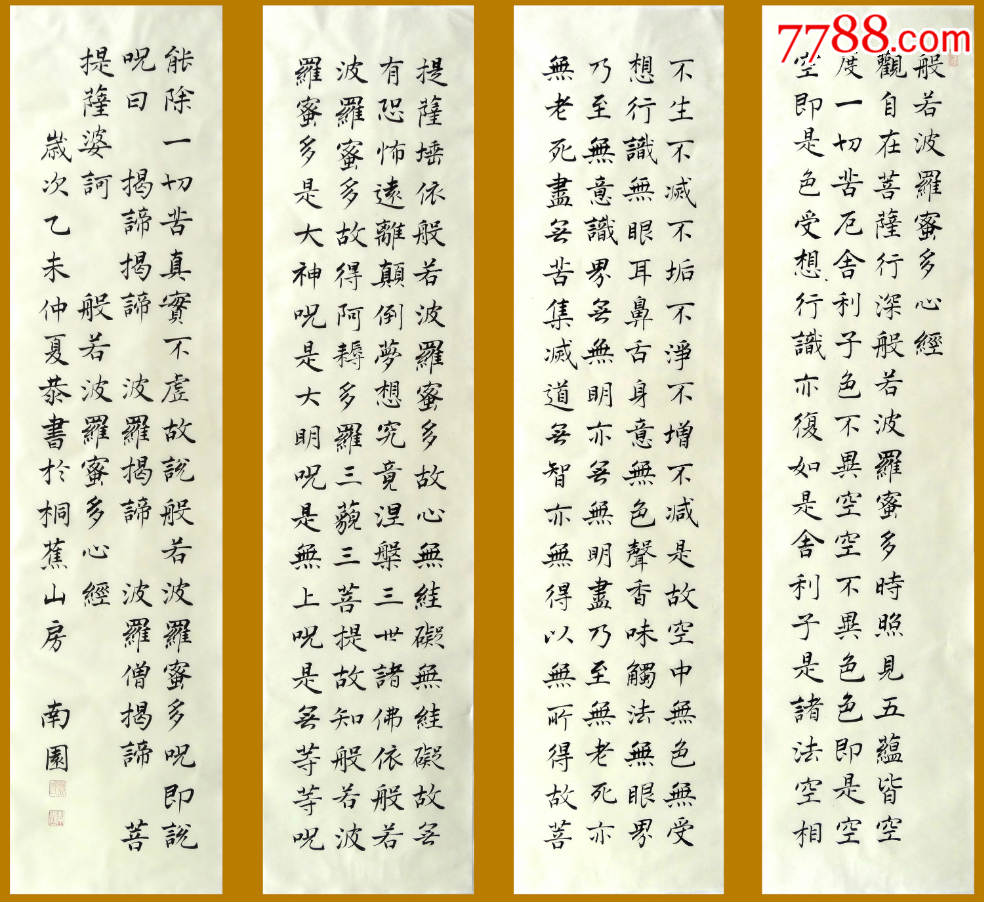 7788.com
般若波羅蜜多心經
觀自在菩薩行深般若波羅蜜多時照見五蘊皆空
度一切苦厄舍利子色不異空空不異色色即是空
空即是色受想行識亦復如是舍利子是諸法空相
不生不滅不垢不淨不增不減是故空中無色無受
想行識無眼耳鼻舌身意無色聲香味觸法無眼界
乃至無意識界无無明亦无無明盡乃至無老死亦
無老死盡无苦集滅道无智亦無得以無所得故菩
提薩埵依般若波羅蜜多故心無絓礙無絓礙故无
有恐怖遠離顛倒夢想究竟涅槃三世諸佛依般若
波羅蜜多故得阿耨多羅三藐三菩提故知般若波
羅蜜多是大神呪是大明呪是無上呪是无等等呪
能除一切苦真實不虛故說般若波羅蜜多呪即說
呪曰 揭諦揭諦 波羅揭諦 波羅僧揭諦 菩
提薩婆訶 般若波羅蜜多心經
歲次乙未仲夏恭書於桐蕉山房 南園